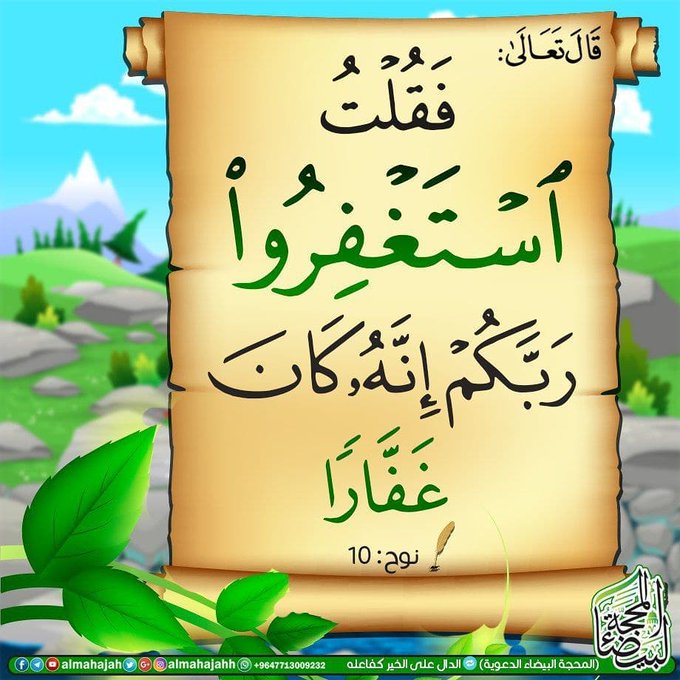 قَالَ تَعَالَىٰ:
فَقُلْتُ
ٱسْتَغْفِرُوا۟
رَبَّكُمْ إِنَّهُۥ كَانَ
غَفَّارًا
نوح: 10
المحجة البيضاء
(المحجة البيضاء الدعوية) الدال على الخير كفاعله +9647713009232 almahajahh almahajah